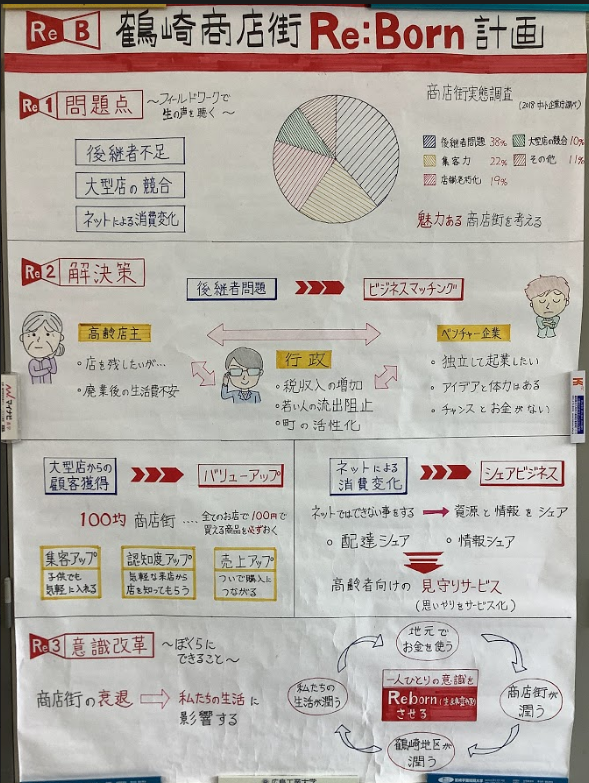 Re B 鶴崎商店街 Re:Born 計画
Re 1 問題点 ～フィールドワークで
生の声を聴く～
後継者不足
大型店の競合
ネットによる消費変化
商店街実態調査
(2018 中小企業庁調べ)
後継者問題 38% 大型店の競合 10%
集客力 22% その他 11%
店舗老朽化 19%
魅力ある商店街を考える
Re 2 解決策
後継者問題 ビジネスマッチング
高齢店主
・店を残したいが…
・廃業後の生活費不安
行政
・税収入の増加
・若い人の流出阻止
・町の活性化
ベンチャー企業
・独立して起業したい
・アイデアと体力はある
・チャンスとお金がない
大型店からの
顧客獲得
バリューアップ
100均 商店街 ‥‥ 全てのお店で100円で
買える商品を必ずおく
集客アップ
子供でも
気軽に入れる
認知度アップ
気軽な来店から
店を知ってもらう
売上アップ
ついで購入に
つながる
ネットによる
消費変化
シェアビジネス
ネットではできない事をする → 資源と情報をシェア
○ 配達シェア ○ 情報シェア
高齢者向けの 見守りサービス
(思いやりをサービス化)
Re 3 意識改革 ～ぼくらに
できること～
商店街の衰退 ⇨ 私たちの生活に
影響する
地元で
お金を使う
商店街が
潤う
鶴崎地区が
潤う
私たちの
生活が潤う
一人ひとりの意識を
Reborn
させる
マイナビ
広島工業大学